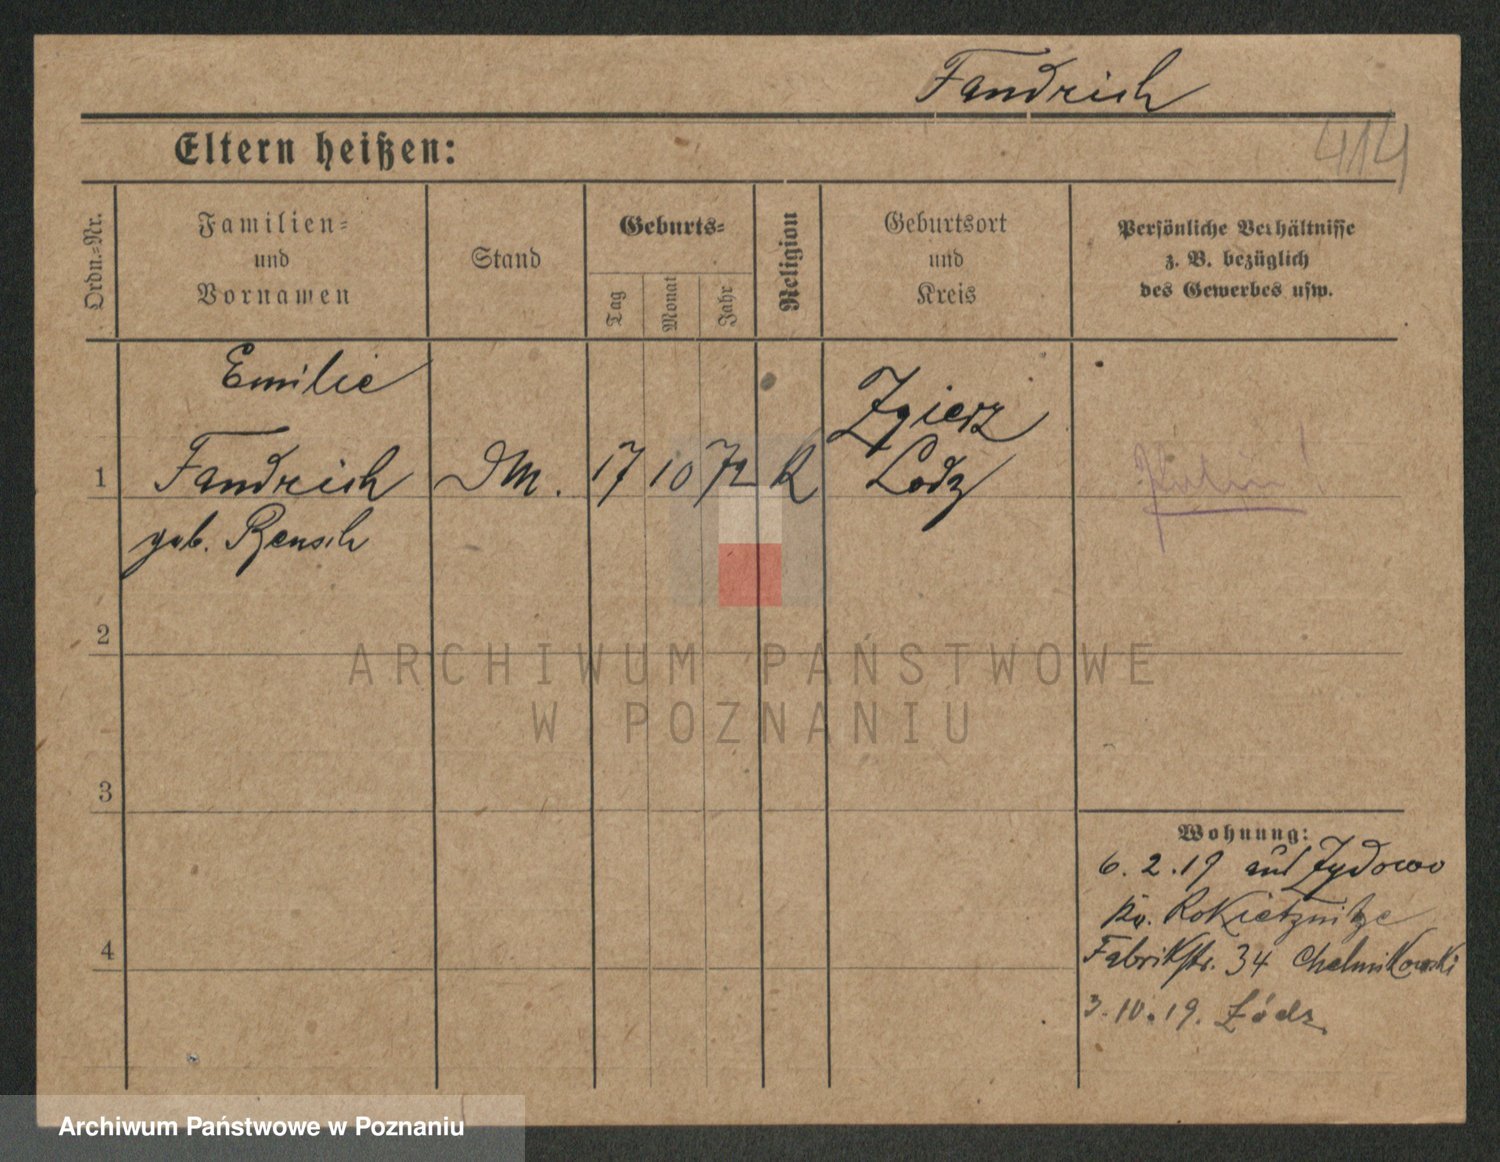 Fandrich
414
Eltern heißen:
Ordn.-Nr.
Familien-
und
Vornamen
Stand
Geburts-
Tag
Monat
Jahr
Religion
Geburtsort
und
Kreis
Persönliche Verhältnisse
z. B. bezüglich
des Gewerbes usw.
Emilie
1 Fandrich DM. 17 10 72 K Zgierz
Lodz
geb. Rensch
2
3
4
ARCHIWUM PAŃSTWOWE
W POZNANIU
Wohnung:
6.2.19 auf Zydowo
Kr. Rokietznitze
Fabrikstr. 34 Chelmikowski
3.10.19. Łódz
Archiwum Państwowe w Poznaniu